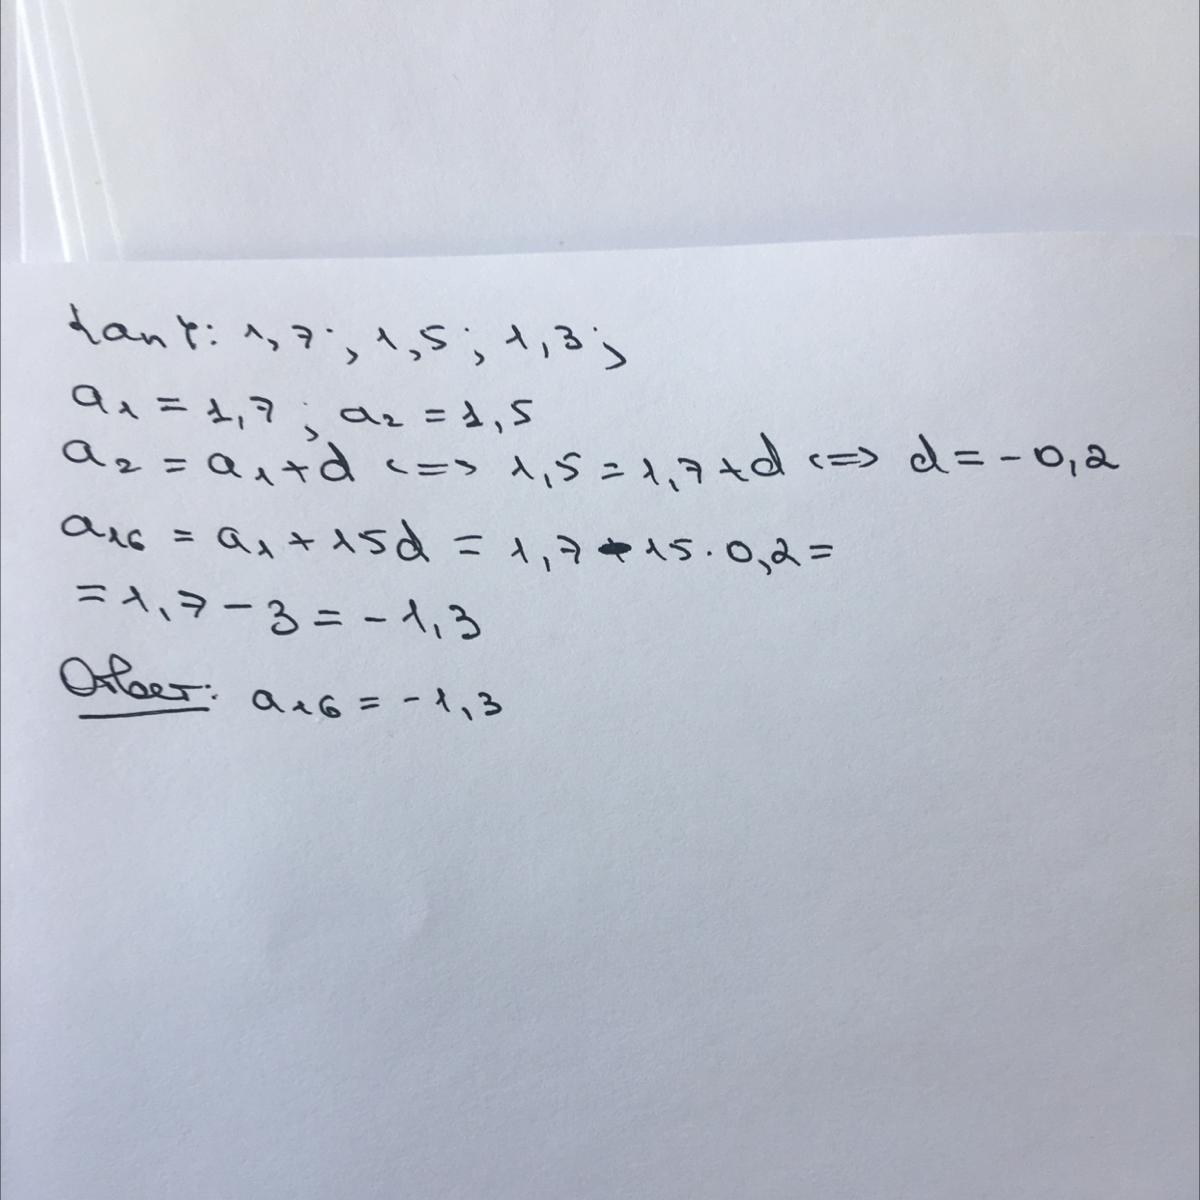 {an}: 1,7; 1,5; 1,3;
a₁ = 1,7; a₂ = 1,5
a₂ = a₁ + d <=> 1,5 = 1,7 + d <=> d = -0,2
a₁₆ = a₁ + 15d = 1,7 - 15 · 0,2 =
= 1,7 - 3 = - 1,3
Ответ: a₁₆ = - 1,3